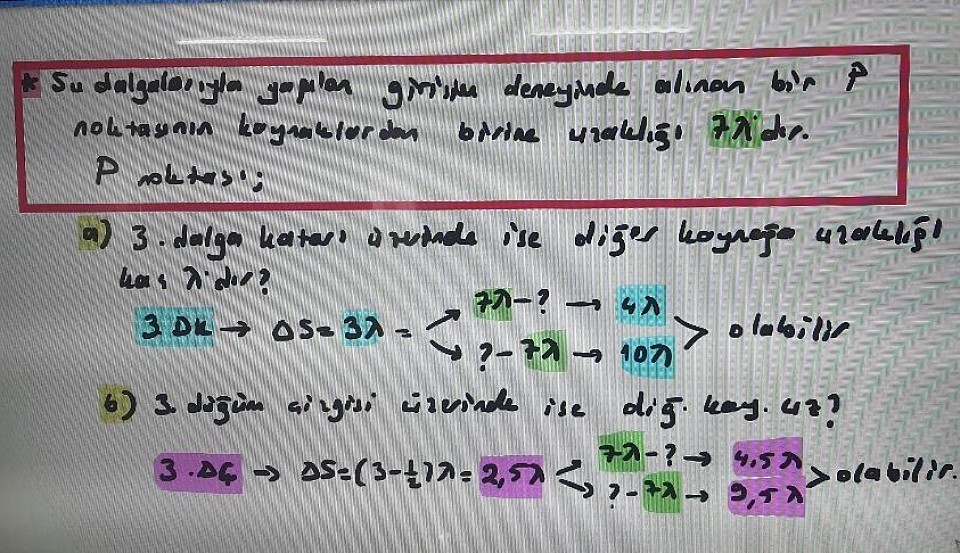 * Su dalgalarıyla yapılan girişim deneyinde alınan bir P
noktasının kaynaklardan birine uzaklığı 7λ'dır.
P noktası;
a) 3. dalga katarı üzerinde ise diğer kaynağa uzaklığı
kaç λ'dır?
3. DK → ΔS = 3λ = 7λ - ? → 4λ
? - 7λ → 10λ > olabilir
b) 3. düğüm çizgisi üzerinde ise diğ. kay. uz?
3. DÇ → ΔS = (3 - 1/2)λ = 2,5λ < 7λ - ? → 4,5λ
? - 7λ → 9,5λ > olabilir.